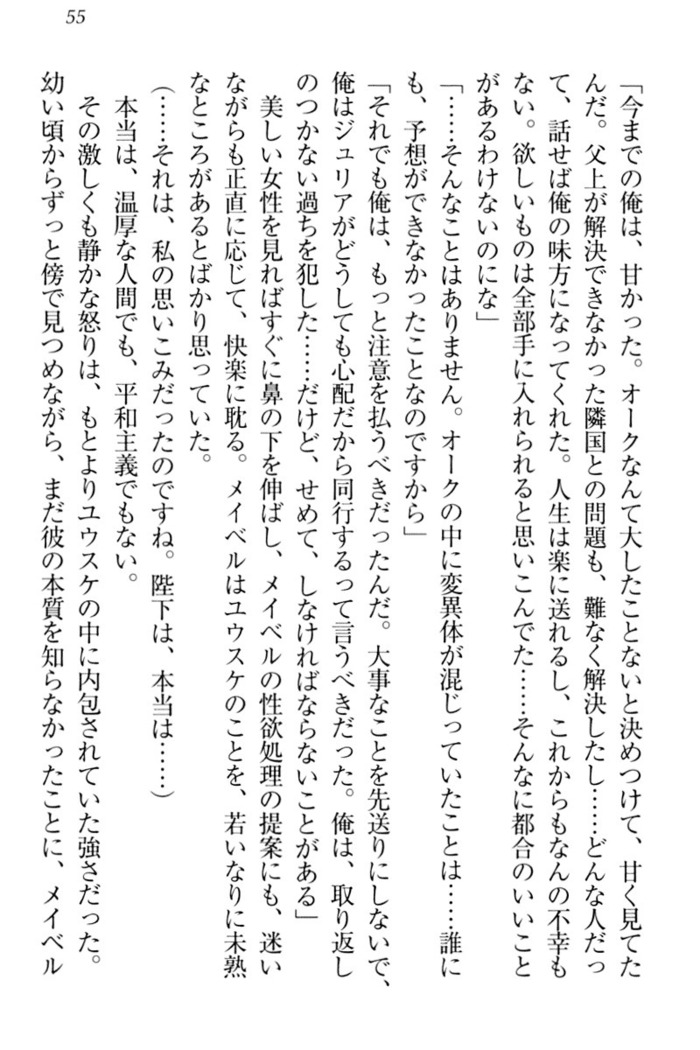 55
「今までの俺は、甘かった。オークなんて大したことないと決めつけて、甘く見てた
んだ。父上が解決できなかった隣国との問題も、難なく解決したし……どんな人だっ
て、話せば俺の味方になってくれた。人生は楽に送れるし、これからもなんの不幸も
ない。欲しいものは全部手に入れられると思いこんでた……そんなに都合のいいこと
があるわけないのにな」
「……そんなことはありません。オークの中に変異体が混じっていたことは……誰に
も、予想ができなかったことなのですから」
「それでも俺は、もっと注意を払うべきだったんだ。大事なことを先送りにしないで、
俺はジュリアがどうしても心配だから同行するって言うべきだった。俺は、取り返し
のつかない過ちを犯した……だけど、せめて、しなければならないことがある」
美しい女性を見ればすぐに鼻の下を伸ばし、メイベルの性欲処理の提案にも、迷い
ながらも正直に応じて、快楽に耽る。メイベルはユウスケのことを、若いなりに未熟
なところがあるとばかり思っていた。
（……それは、私の思いこみだったのですね。陛下は、本当は……）
本当は、温厚な人間でも、平和主義でもない。
その激しくも静かな怒りは、もとよりユウスケの中に内包されていた強さだった。
幼い頃からずっと傍で見つめながら、まだ彼の本質を知らなかったことに、メイベル